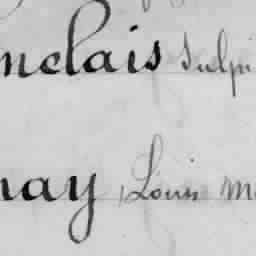 nclais Sulpi
nay, Louis Ma